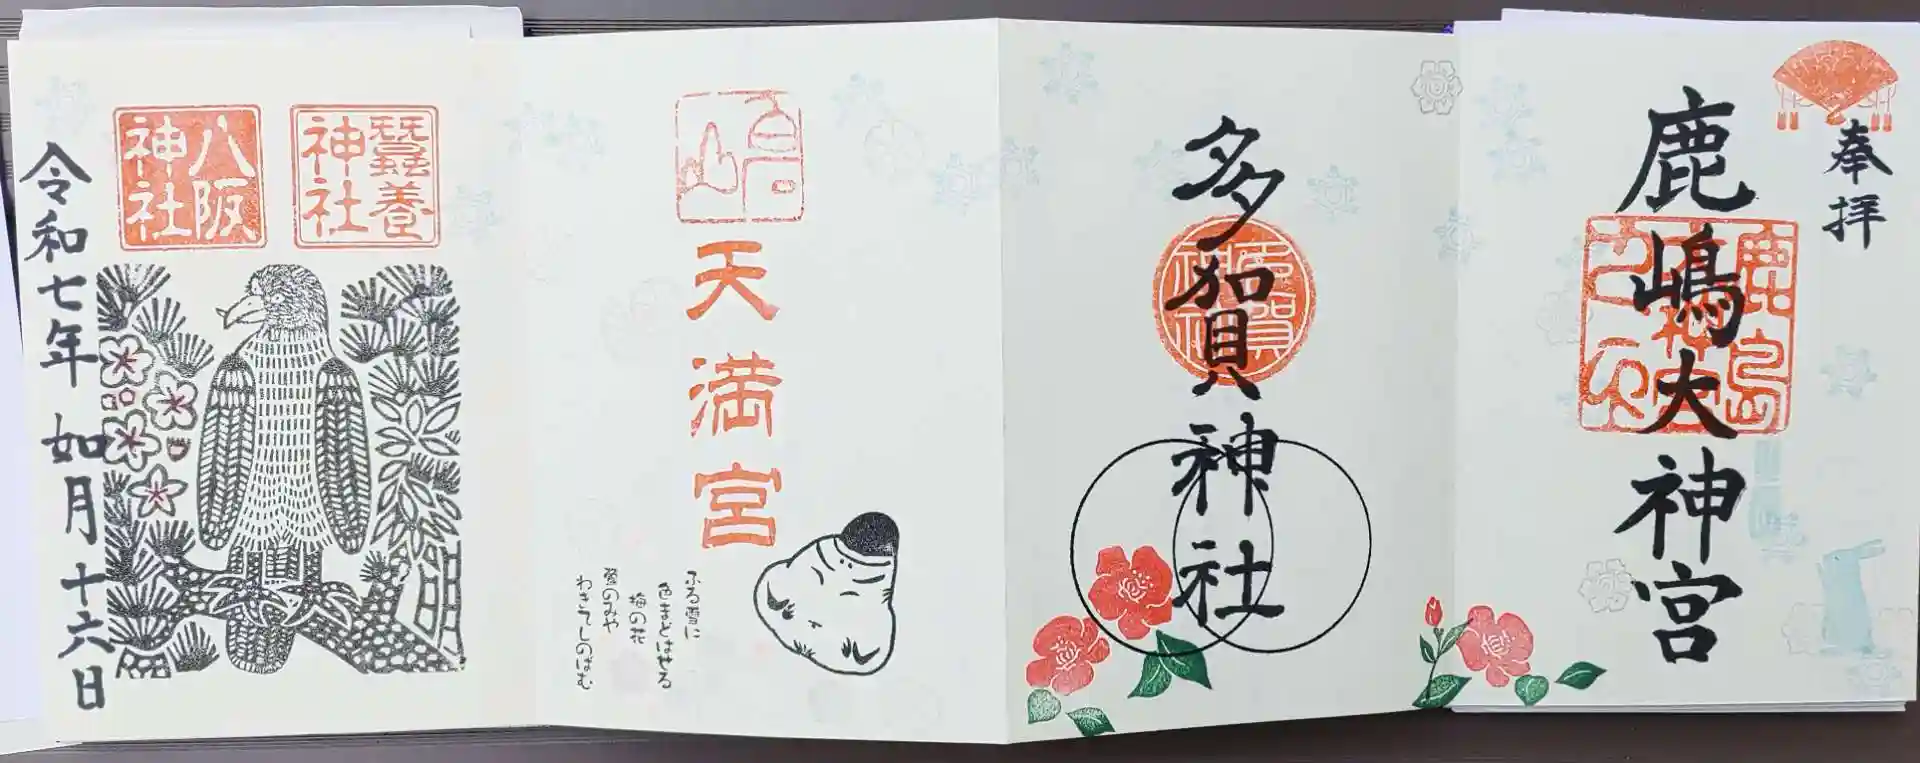 奉拝
鹿嶋大神宮
多賀神社
天満宮
ふる雪に
色まどはせる
梅の花
鶯のみや
わきてしのばむ
蠶養
神社
八阪
神社
令和七年 如月 十六日